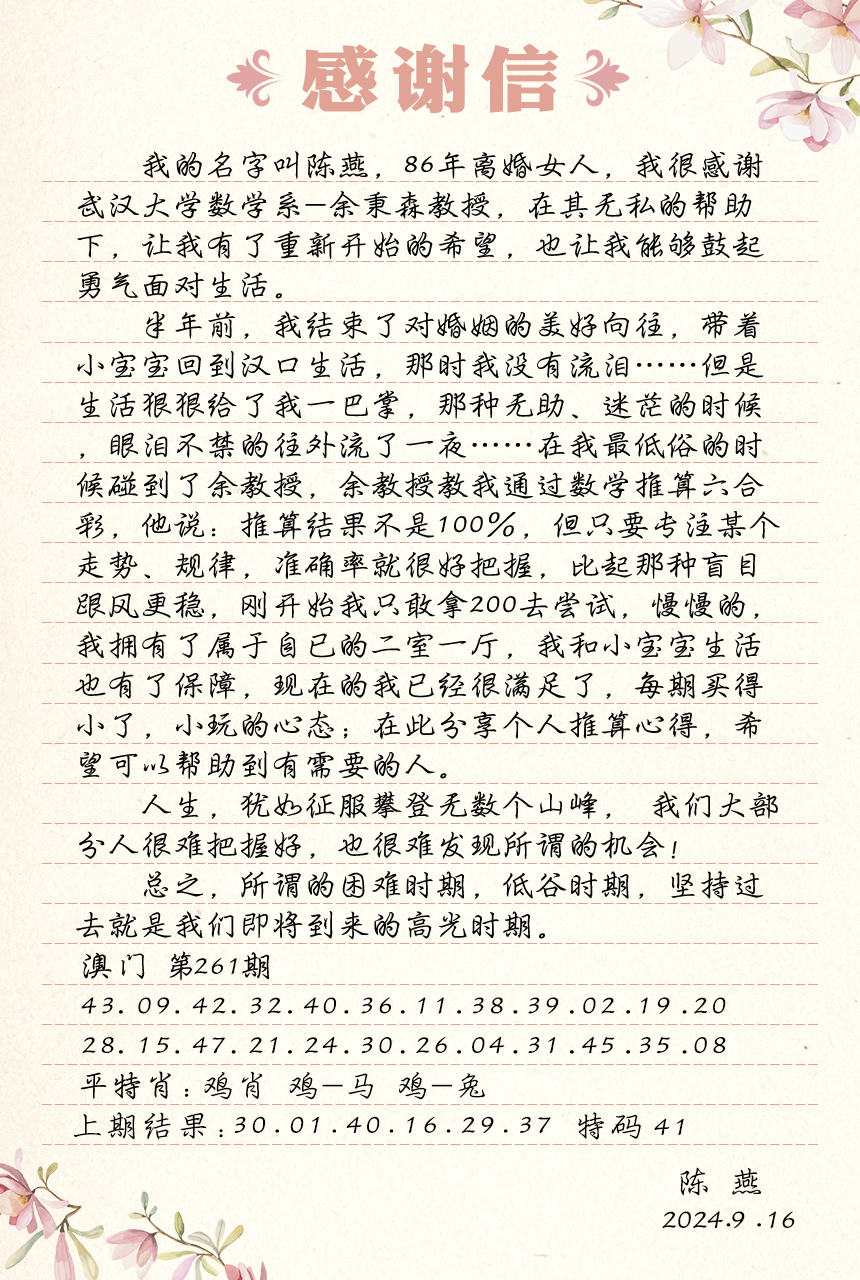 感谢信
我的名字叫陈燕，86年离婚女人，我很感谢
武汉大学数学系—余秉森教授，在其无私的帮助
下，让我有了重新开始的希望，也让我能够鼓起
勇气面对生活。
半年前，我结束了对婚姻的美好向往，带着
小宝宝回到汉口生活，那时我没有流泪……但是
生活狠狠给了我一巴掌，那种无助、迷茫的时候
，眼泪不禁的往外流了一夜……在我最低俗的时
候碰到了余教授，余教授教我通过数学推算六合
彩，他说：推算结果不是100%，但只要专注某个
走势、规律，准确率就很好把握，比起那种盲目
跟风更稳，刚开始我只敢拿200去尝试，慢慢的，
我拥有了属于自已的二室一厅，我和小宝宝生活
也有了保障，现在的我已经很满足了，每期买得
小了，小玩的心态；在此分享个人推算心得，希
望可以帮助到有需要的人。
人生，犹如征服攀登无数个山峰， 我们大部
分人很难把握好，也很难发现所谓的机会！
总之，所谓的困难时期，低谷时期，坚持过
去就是我们即将到来的高光时期。
澳门 第261期
43.09.42.32.40.36.11.38.39.02.19.20
28.15.47.21.24.30.26.04.31.45.35.08
平特肖：鸡肖 鸡—马 鸡—兔
上期结果：30.01.40.16.29.37 特码 41
陈 燕
2024.9.16